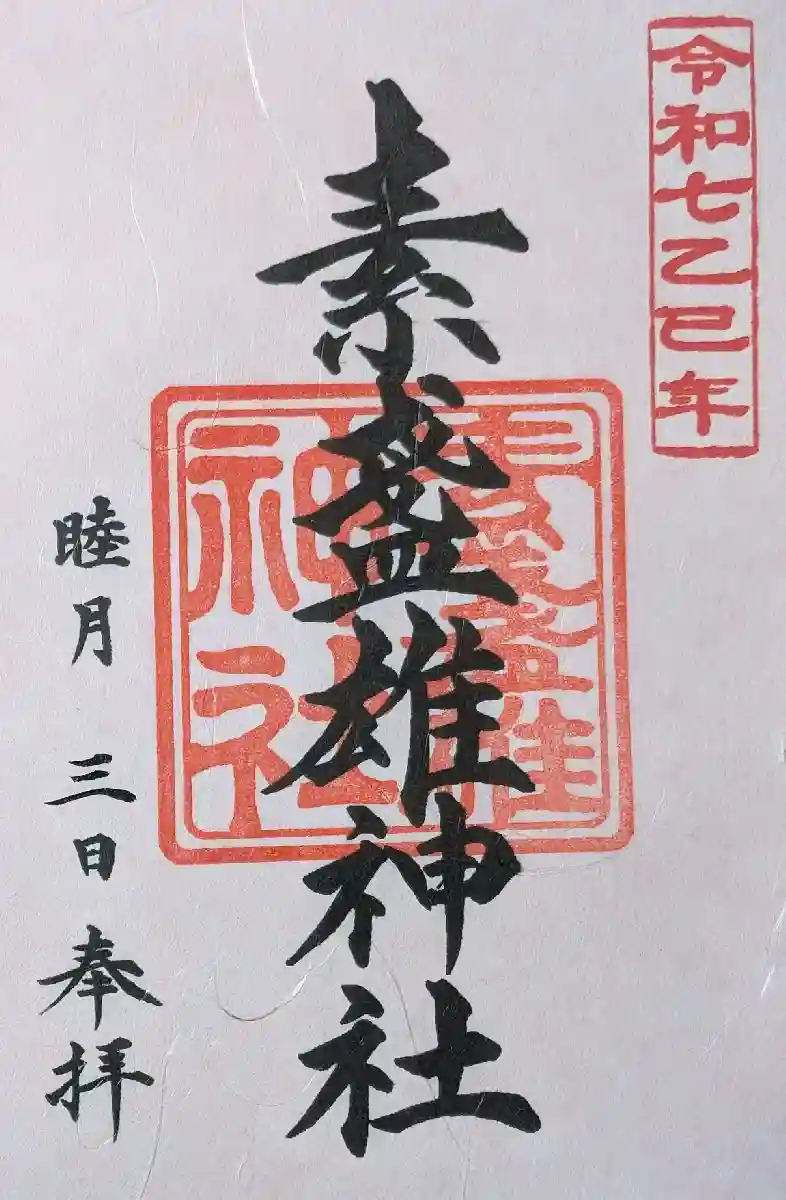 令和七乙巳年
素盞雄神社
素盞雄
神社
睦月 三日 奉拝